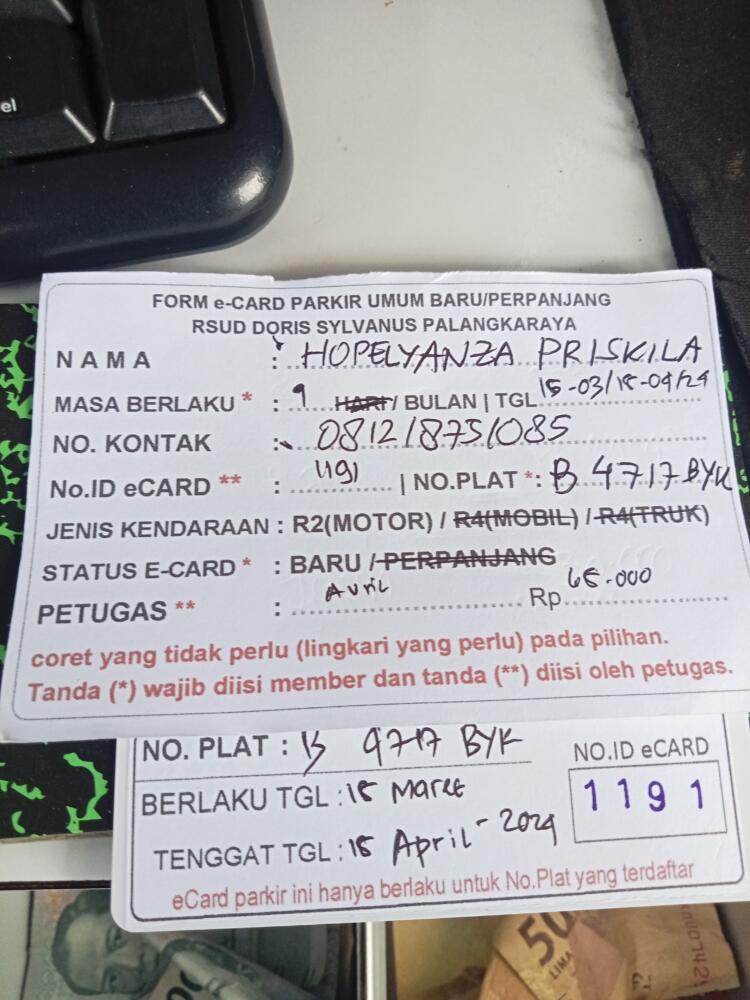 el
FORM e-CARD PARKIR UMUM BARU/PERPANJANG
RSUD DORIS SYLVANUS PALANGKARAYA
NAMA : HOPELYANZA PRISKILA
MASA BERLAKU * : 1 HARI / BULAN | TGL 15-03/15-04/24
NO. KONTAK : 081218751085
No.ID eCARD ** : 1191 | NO.PLAT *: B 4717 BYK
JENIS KENDARAAN : R2(MOTOR) / R4(MOBIL) / R4(TRUK)
STATUS E-CARD * : BARU / PERPANJANG
PETUGAS ** : Avril Rp 65.000
coret yang tidak perlu (lingkari yang perlu) pada pilihan.
Tanda (*) wajib diisi member dan tanda (**) diisi oleh petugas.
NO. PLAT : B 4717 BYK
NO.ID eCARD
BERLAKU TGL : 15 Maret
1191
TENGGAT TGL : 15 April - 2024
eCard parkir ini hanya berlaku untuk No.Plat yang terdaftar
50
LIMA